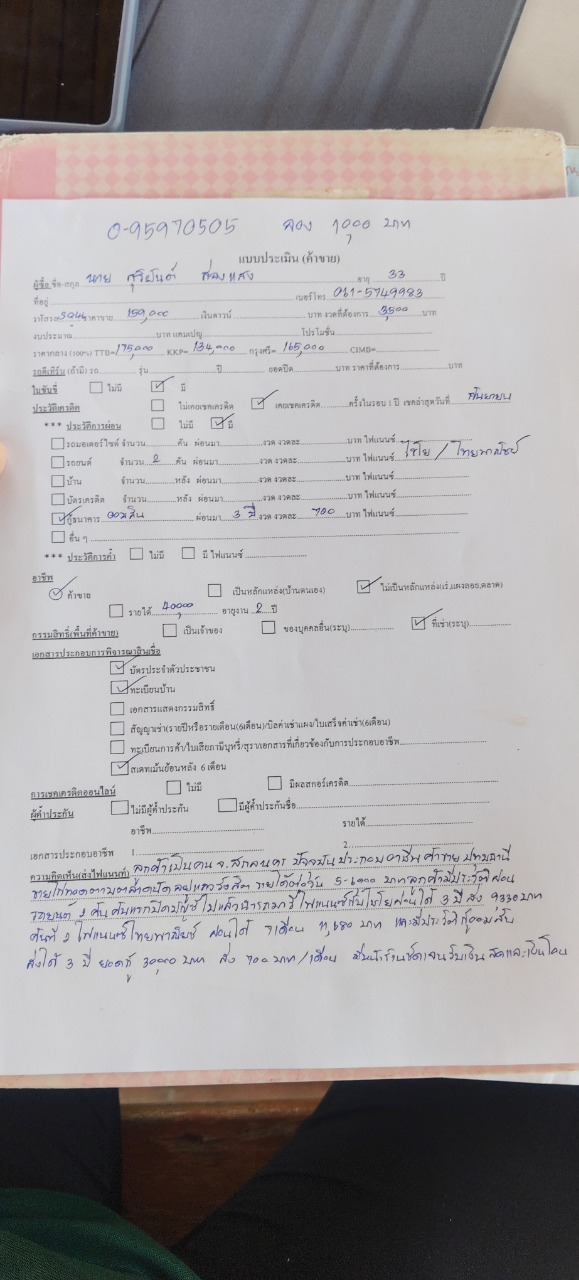 0-95970505 จอง 1,000 บาท
แบบประเมิน (ค้าขาย)
ผู้ซื้อ ชื่อ-สกุล นาย สุริยันต์ อายุ 33 ปี
ที่อยู่ เบอร์โทร 061-5749983
ราคาขาย 159,000 เงินดาวน์ บาท งวดที่ต้องการ 3,500 บาท
งบประมาณ บาท แคมเปญ โปรโมชั่น
ราคากลาง (100%) TTB= 175,000 KKP= 134,000 กรุงศรี= 165,000 CIMB=
รถตีเทิร์น (ถ้ามี) รถ รุ่น ปี ยอดปิด บาท ราคาที่ต้องการ บาท
ใบขับขี่ ไม่มี มี
ประวัติเครดิต ไม่เคยเชคเครดิต เคยเชคเครดิต ครั้งในรอบ 1 ปี เชคล่าสุดวันที่ กันยายน
*** ประวัติการผ่อน ไม่มี มี
รถมอเตอร์ไซค์ จำนวน คัน ผ่อนมา งวด งวดละ บาท ไฟแนนซ์
รถยนต์ จำนวน 2 คัน ผ่อนมา งวด งวดละ บาท ไฟแนนซ์ ไฮโย / ไทยพาณิชย์
บ้าน จำนวน หลัง ผ่อนมา งวด งวดละ บาท ไฟแนนซ์
บัตรเครดิต จำนวน หลัง ผ่อนมา งวด งวดละ บาท ไฟแนนซ์
กู้ธนาคาร ออมสิน ผ่อนมา 3 ปี งวด งวดละ 700 บาท ไฟแนนซ์
อื่น ๆ
*** ประวัติการค้ำ ไม่มี มี ไฟแนนซ์
อาชีพ
ค้าขาย เป็นหลักแหล่ง(บ้านตนเอง) ไม่เป็นหลักแหล่ง(เร่,แผงลอย,ตลาด)
รายได้ 40,000 อายุงาน 2 ปี
กรรมสิทธิ์(พื้นที่ค้าขาย) เป็นเจ้าของ ของบุคคลอื่น(ระบุ) ที่เช่า(ระบุ)
เอกสารประกอบการพิจารณาสินเชื่อ
บัตรประจำตัวประชาชน
ทะเบียนบ้าน
เอกสารแสดงกรรมสิทธิ์
สัญญาเช่า(รายปีหรือรายเดือน(6เดือน)/บิลค่าเช่าแผง/ใบเสร็จค่าเช่า(6เดือน)
ทะเบียนการค้า/ใบเสียภาษีบุหรี่/สุรา/เอกสารที่เกี่ยวข้องกับการประกอบอาชีพ
สเตทเม้นย้อนหลัง 6 เดือน
การเชคเครดิตออนไลน์ ไม่มี มีผลสกอร์เครดิต
ผู้ค้ำประกัน ไม่มีผู้ค้ำประกัน มีผู้ค้ำประกันชื่อ
อาชีพ รายได้
เอกสารประกอบอาชีพ 1. 2.
ความคิดเห็น(ส่งไฟแนนท์) ลูกค้าเป็นคน จ.สกลนคร ปัจจุบันประกอบอาชีพค้าขาย ปทุมธานี
ขายไก่ทอดตามตลาดนัด รังสิต รายได้ต่อวัน 5-6000 บาท ลูกค้ามีประวัติผ่อน
รถยนต์ 2 คัน คันแรกปิดบัญชีไปแล้ว ไฟแนนซ์ ผ่อนได้ 3 ปี ส่ง 9330 บาท
คันที่ 2 ไฟแนนซ์ไทยพาณิชย์ ผ่อนได้ 7 เดือน 11,680 บาท และมีประวัติกู้ออมสิน
ส่งได้ 3 ปี ยอดกู้ 30,000 บาท ส่ง 700 บาท/เดือน รับเงินสดและเงินโอน